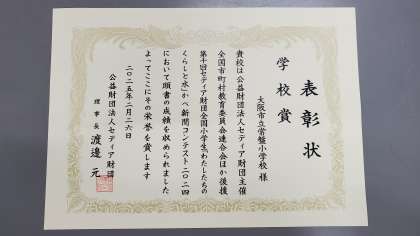 表彰状
学校賞
大阪市立常盤小学校 様
貴校は公益財団法人セディア財団主催
全国市町村教育委員会連合会ほか後援
第十回セディア財団全国小学生「わたしたちの
くらしと水」かべ新聞コンテスト二〇二四
において頭書の成績を収められました
よってここにその栄誉を賞します
二〇二五年二月二六日
公益財団法人セディア財団
理事長 渡邊 元